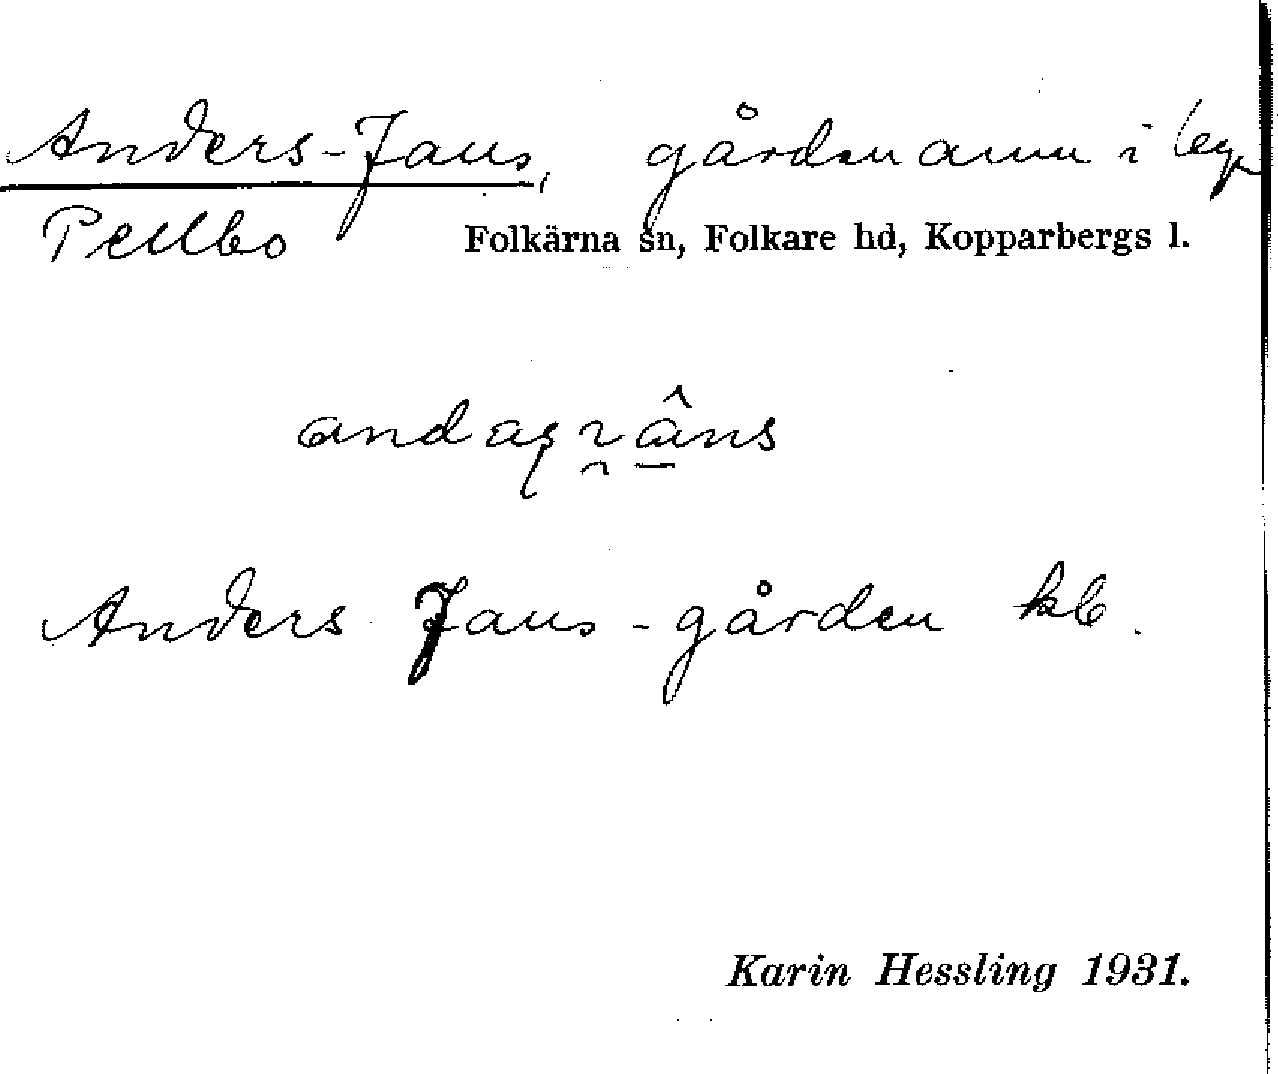 Anders-Jans, gårdsnamn i byn
Pellbo Folkärna sn, Folkare hd, Kopparbergs l.
Anders Jans-gården kb.
Karin Hessling 1931.